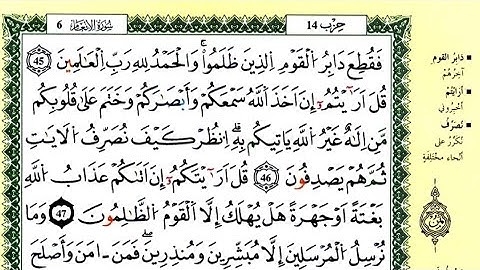 حِزْب 14
سُورَةُ الأَنْعَام 6
فَقُطِعَ دَابِرُ الْقَوْمِ الذِينَ ظَلَمُواْ وَالْحَمْدُ لِلهِ رَبِّ الْعَٰلَمِينَ 45
قُلَ اَرَٰٓيْتُمُۥٓ إِنَ اَخَذَ اَللَّهُ سَمْعَكُمْ وَأَبْصَٰرَكُمْ وَخَتَمَ عَلَىٰ قُلُوبِكُم
مَّنِ اِلَٰهٌ غَيْرُ اُللَّهِ يَاتِيكُم بِهِۦٓ اِنظُرْ كَيْفَ نُصَرِّفُ اُلَايَٰتِ
ثُمَّ هُمْ يَصْدِفُونَ 46 قُلَ اَرَٰٓيْتَكُمُۥٓ إِنَ اَتَىٰكُمْ عَذَابُ اُللَّهِ
بَغْتَةً اَوْ جَهْرَةً هَلْ يُهْلَكُ إِلَّا اَلْقَوْمُ اُلظَّٰلِمُونَ 47 وَمَا
نُرْسِلُ اُلْمُرْسَلِينَ إِلَّا مُبَشِّرِينَ وَمُنذِرِينَ فَمَنَ اٰمَنَ وَأَصْلَحَ
دَابِرُ القوم
آخِرُهُمْ
أَرَايْتُمْ
أَخْبِرُونِي
نُصَرِّفُ
نُكَرِّرُ عَلَى
أَنْحَاءٍ مُخْتَلِفَةٍ